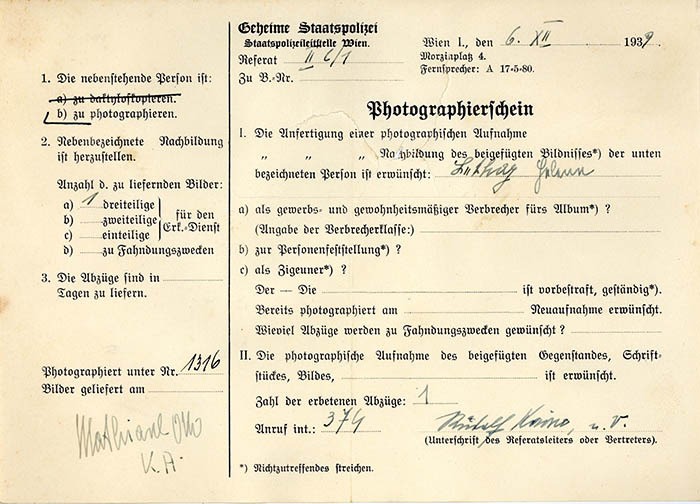 1. Die nebenstehende Person ist:
a) zu daktyloskopieren.
b) zu photographieren.
2. Nebenbezeichnete Nachbildung
ist herzustellen.
Anzahl d. zu liefernden Bilder:
a) 1 dreiteilige
b) zweiteilige
c) einteilige
für den
Erk.-Dienst
d) zu Fahndungszwecken
3. Die Abzüge sind in
Tagen zu liefern.
Photographiert unter Nr. 1316
Bilder geliefert am
Otto
K.A.
Geheime Staatspolizei
Staatspolizeileitstelle Wien.
Referat II
Zu B.-Nr.
Wien I., den 6. XII 1939
Morzinplatz 4.
Fernsprecher: A 17-5-80.
Photographierschein
I. Die Anfertigung einer photographischen Aufnahme
„ „ „ Nachbildung des beigefügten Bildnisses*) der unten
bezeichneten Person ist erwünscht:
a) als gewerbs- und gewohnheitsmäßiger Verbrecher fürs Album*) ?
(Angabe der Verbrecherklasse:)
b) zur Personenfeststellung*) ?
c) als Zigeuner*) ?
Der — Die ist vorbestraft, geständig*).
Bereits photographiert am Neuaufnahme erwünscht.
Wieviel Abzüge werden zu Fahndungszwecken gewünscht ?
II. Die photographische Aufnahme des beigefügten Gegenstandes, Schrift-
stückes, Bildes, ist erwünscht.
Zahl der erbetenen Abzüge: 1
Anruf int.: 374
Rudolf
(Unterschrift des Referatsleiters oder Vertreters).
*) Nichtzutreffendes streichen.